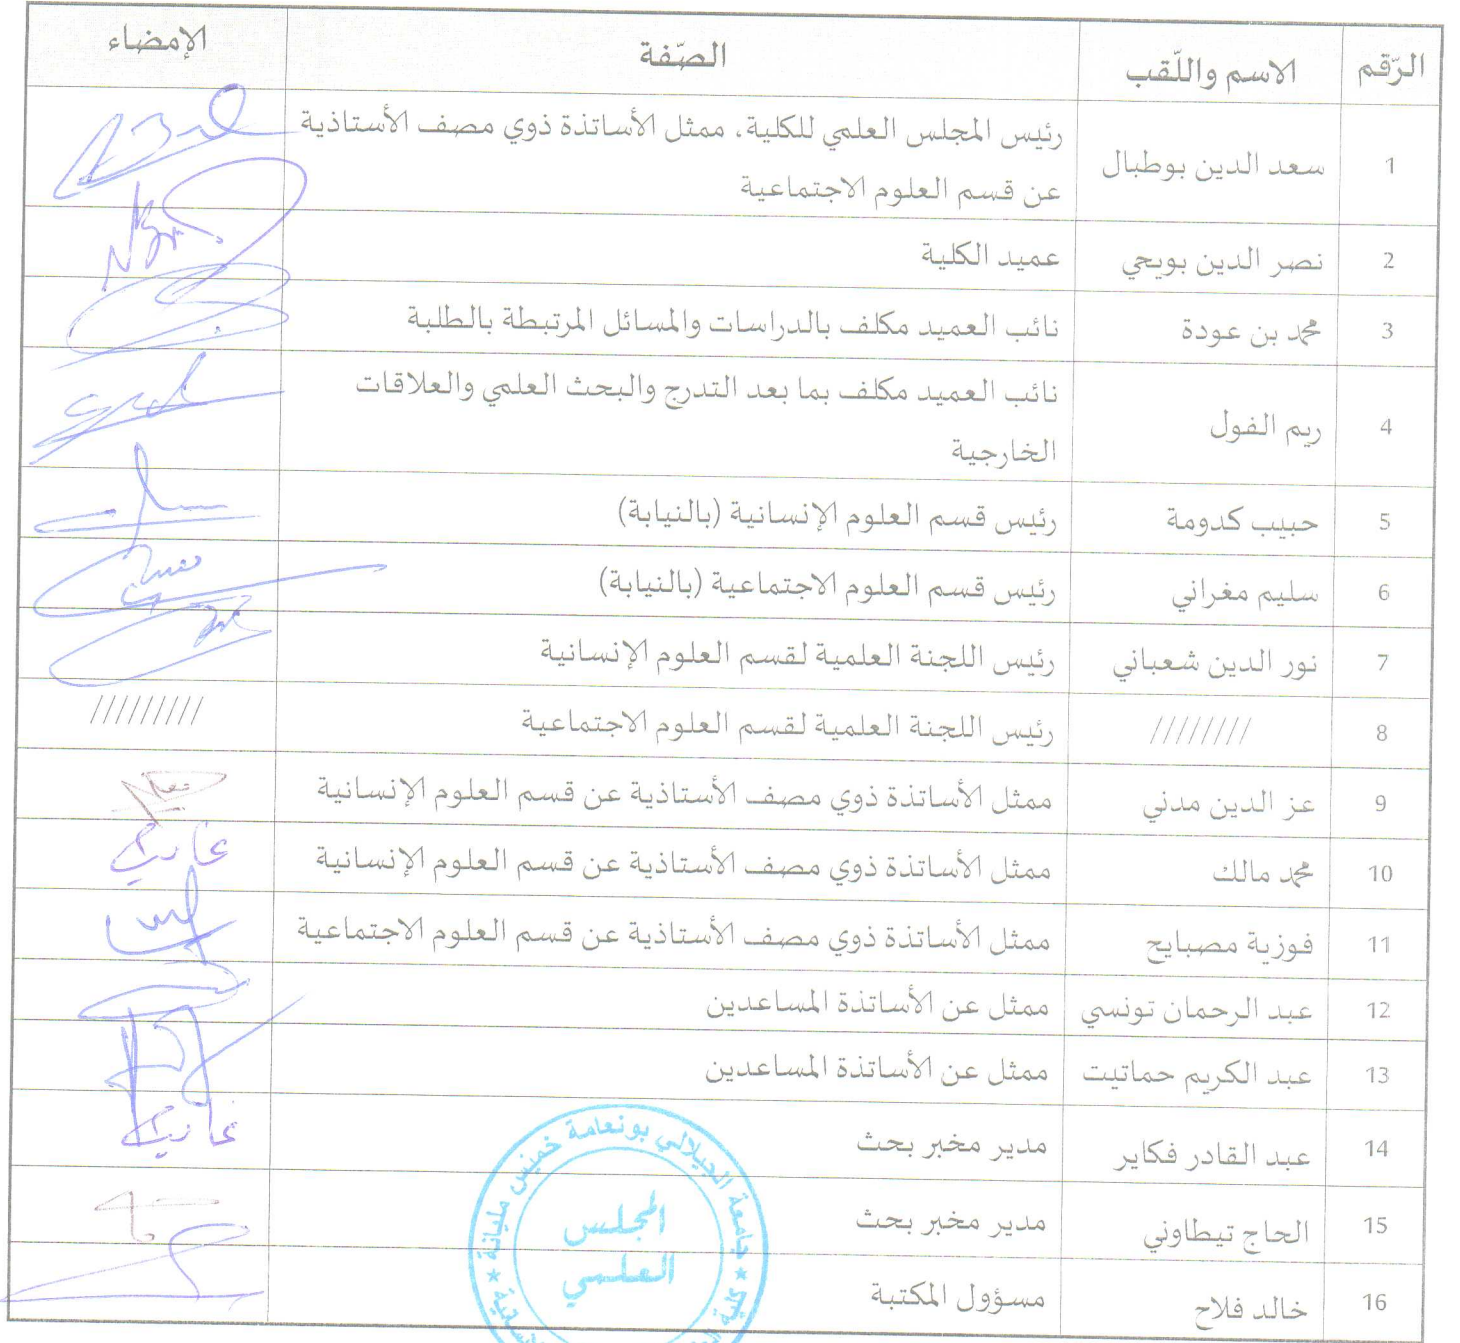 الرّقم الاسم واللّقب الصّفة الإمضاء
1 سعد الدين بوطبال رئيس المجلس العلمي للكلية، ممثل الأساتذة ذوي مصف الأستاذية
عن قسم العلوم الاجتماعية
2 نصر الدين بويحي عميد الكلية
3 محمد بن عودة نائب العميد مكلف بالدراسات والمسائل المرتبطة بالطلبة
4 ريم الفول نائب العميد مكلف بما بعد التدرج والبحث العلمي والعلاقات
الخارجية
5 حبيب كدومة رئيس قسم العلوم الإنسانية (بالنيابة)
6 سليم مغراني رئيس قسم العلوم الاجتماعية (بالنيابة)
7 نور الدين شعباني رئيس اللجنة العلمية لقسم العلوم الإنسانية
8 //////// رئيس اللجنة العلمية لقسم العلوم الاجتماعية /////////
9 عز الدين مدني ممثل الأساتذة ذوي مصف الأستاذية عن قسم العلوم الإنسانية
10 محمد مالك ممثل الأساتذة ذوي مصف الأستاذية عن قسم العلوم الإنسانية
11 فوزية مصبايح ممثل الأساتذة ذوي مصف الأستاذية عن قسم العلوم الاجتماعية
12 عبد الرحمان تونسي ممثل عن الأساتذة المساعدين
13 عبد الكريم حماتيت ممثل عن الأساتذة المساعدين
14 عبد القادر فكاير مدير مخبر بحث
15 الحاج تيطاوني مدير مخبر بحث
16 خالد فلاح مسؤول المكتبة
جامعة الجيلالي بونعامة خميس مليانة
المجلس
العلمي
كلية